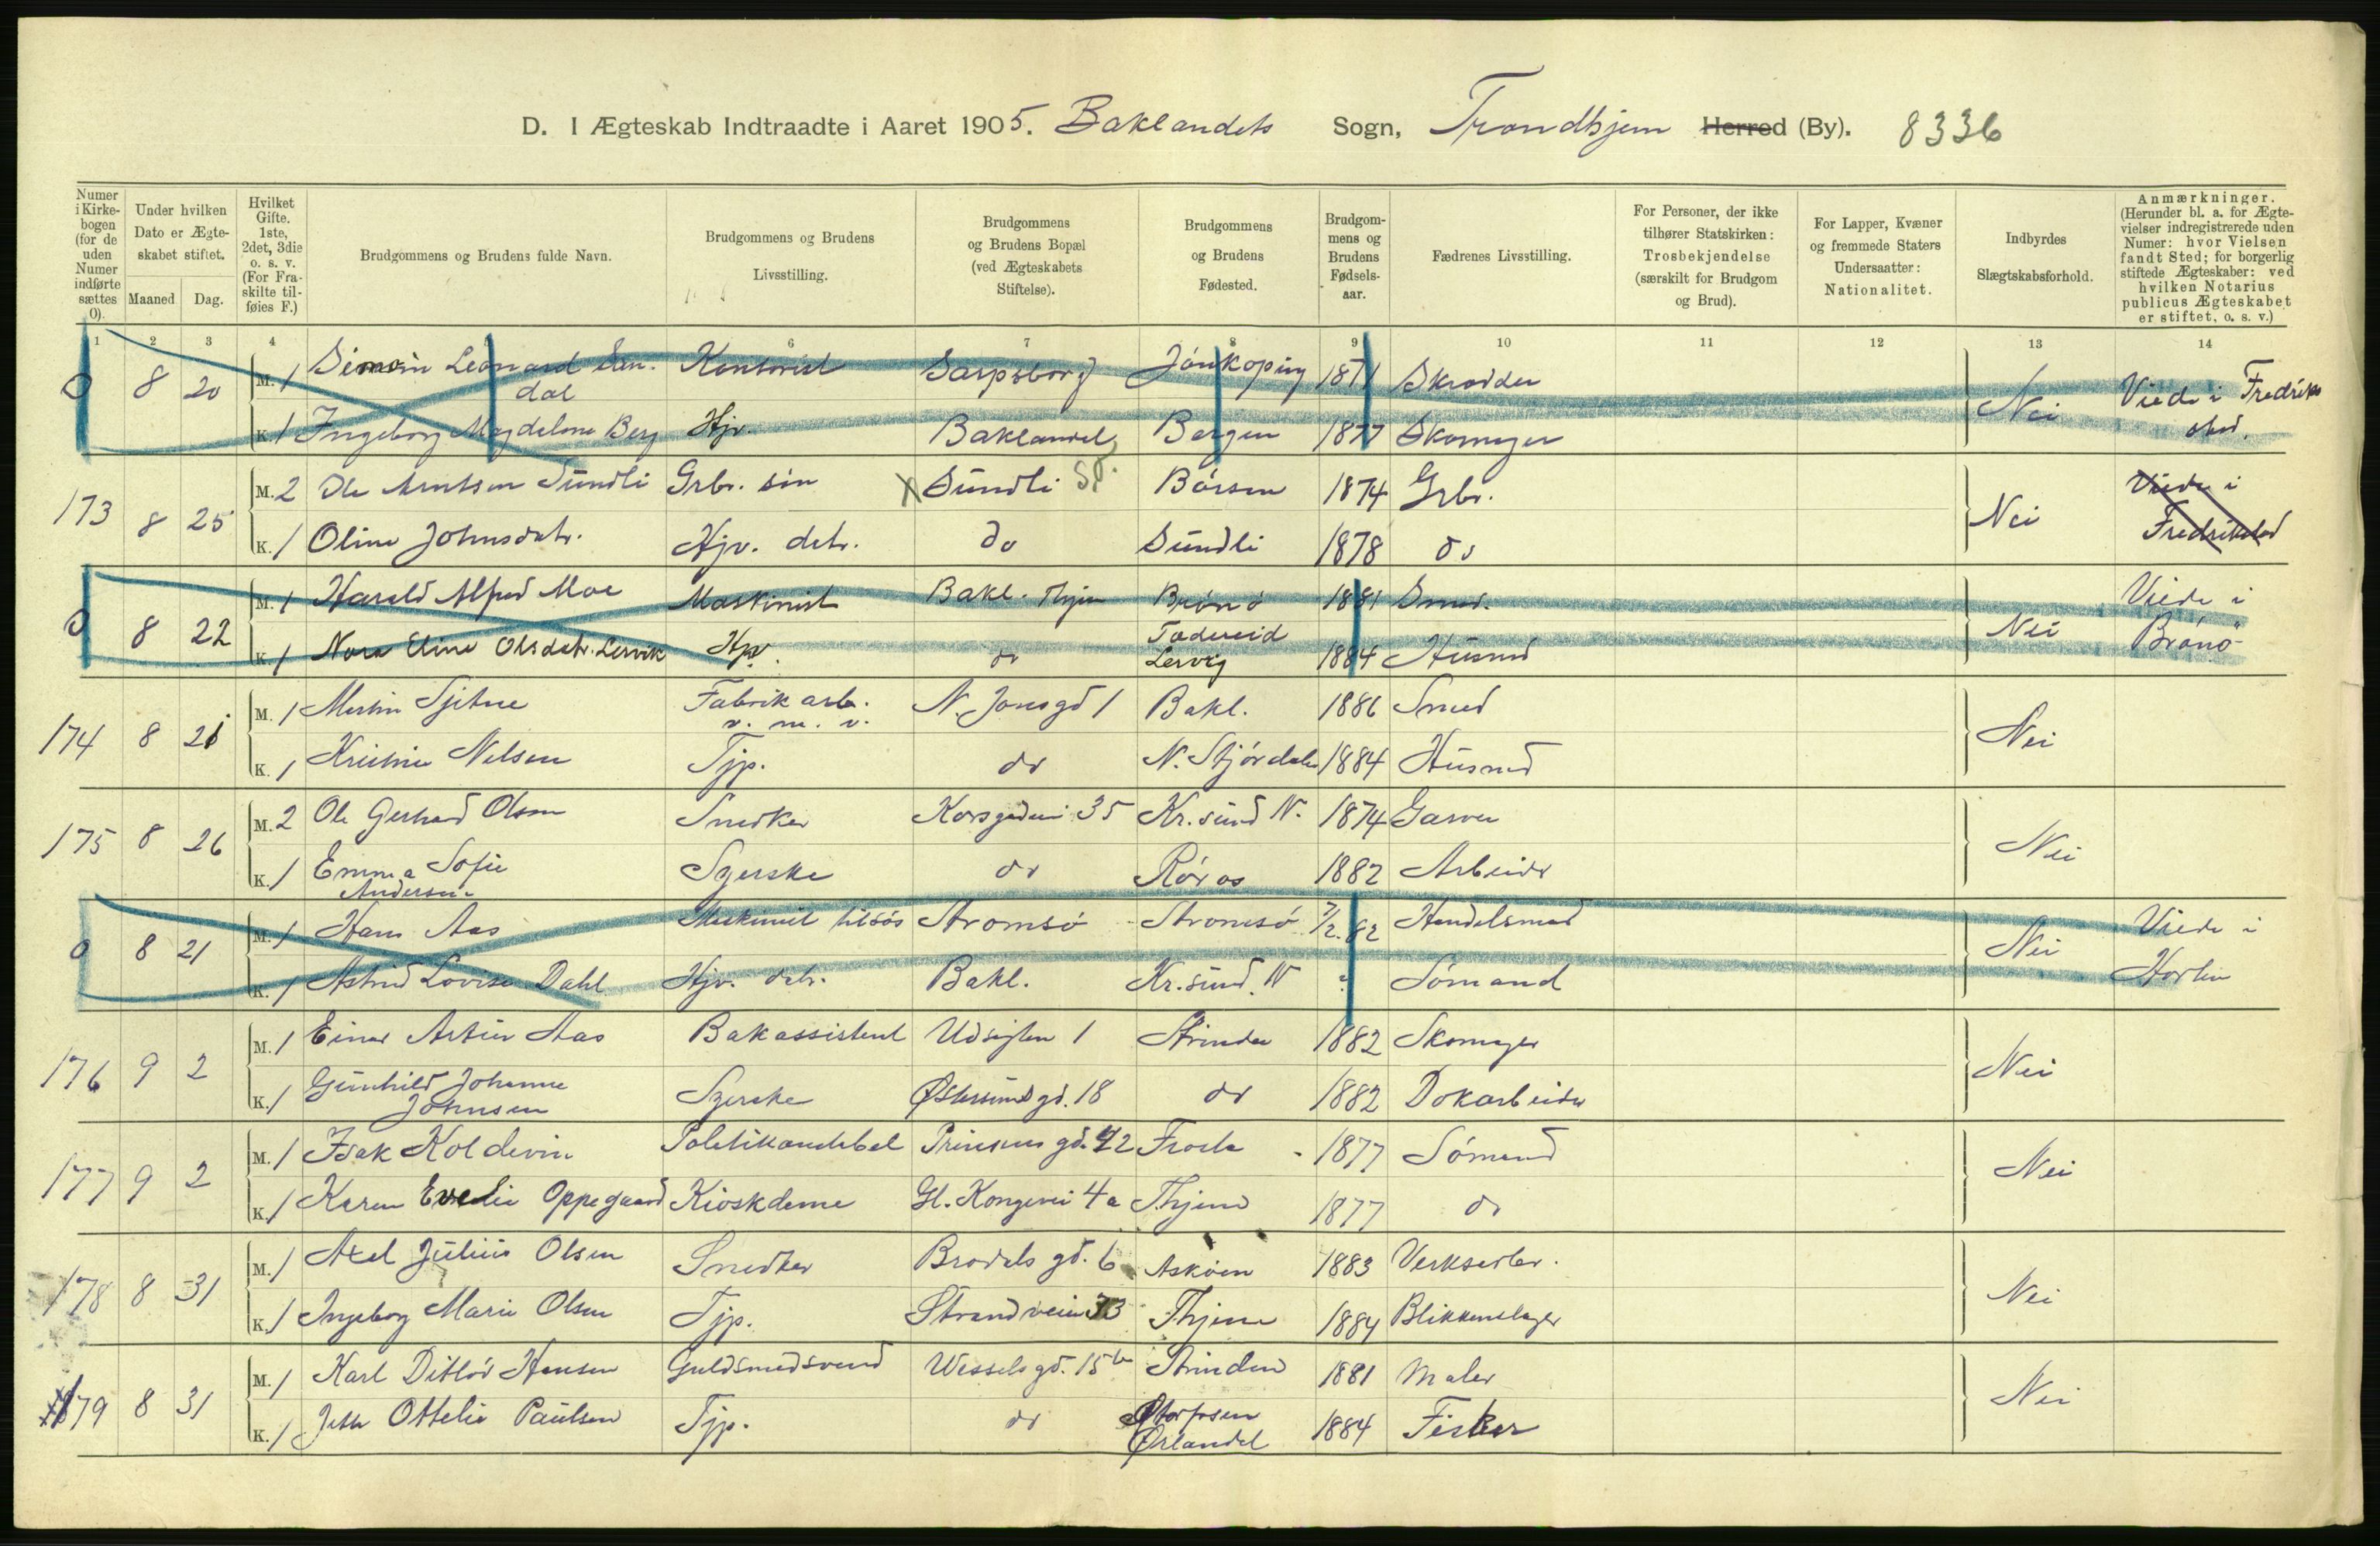 D. I Ægteskab Indtraadte i Aaret 1905. Baklandets Sogn, Trondhjem Herred (By). 8336
Numer i Kirkebogen (for de uden Numer indførte sættes 0).
Under hvilken Dato er Ægteskabet stiftet.
Maaned Dag.
Hvilket Gifte. 1ste, 2det, 3die o. s. v. (For Fraskilte tilføies F.)
Brudgommens og Brudens fulde Navn.
Brudgommens og Brudens Livsstilling.
Brudgommens og Brudens Bopæl (ved Ægteskabets Stiftelse).
Brudgommens og Brudens Fødested.
Brudgommens og Brudens Fødselsaar.
Fædrenes Livsstilling.
For Personer, der ikke tilhører Statskirken: Trosbekjendelse (særskilt for Brudgom og Brud).
For Lapper, Kvæner og fremmede Staters Undersaatter: Nationalitet.
Indbyrdes Slægtskabsforhold.
Anmærkninger. (Herunder bl. a. for Ægtevielser indregistrerede uden Numer: hvor Vielsen fandt Sted; for borgerlig stiftede Ægteskaber: ved hvilken Notarius publicus Ægteskabet er stiftet, o. s. v.)
1 2 3 4 5 6 7 8 9 10 11 12 13 14
0 8 20 M. 1 Simon Leonard dal Kontorist Sarpsborg Jönköping 1871 Skrædder Nei Viede i Fredrikstad.
K. 1 Ingeborg Magdalene Berg Hjv. Baklandet Bergen 1877 Skomager
173 8 25 M. 2 Ole Arntsen Sundli Grbr. søn X Sundli Sp. Börsen 1874 Grbr. Nei Viede i Fredrikstad
K. 1 Oline Johnsdatr. Hjv. datr. do Sundli 1878 do
0 8 22 M. 1 Harald Alfred Moe Maskinist Bakl. Thjem Brönö 1881 Smed. Nei Viede i Brönö
K. 1 Nora Eline Olsdatr. Lervik Hjv. do Lervig 1884 Husmd
174 8 21 M. 1 Martin Sjetne Fabrikarb. v. m. v. N. Jonsgd 1 Bakl. 1886 Smed Nei
K. 1 Kristine Nilsen Tjp. do N. Stjørdalen 1884 Husmd
175 8 26 M. 2 Ole Gerhard Olsen Snedker Korsgaden 35 Kr.sund N. 1874 Garver Nei
K. 1 Emma Sofie Andersen Syerske do Röros 1882 Arbeider
0 8 21 M. 1 Hans Aas Maskinist tilsøs Strømsö Strømsö 7/2.82 Handelsmand Nei Viede i Horten
K. 1 Astrid Lovise Dahl Hjv. datr. Bakl. Kr.sund N ? Sømand
176 9 2 M. 1 Einar Artur Aas Bakassistent Udsigten 1 Strinden 1882 Skomager Nei
K. 1 Gunhild Johanne Johnsen Syerske Østersunds gd. 18 do 1882 Dokarbeider
177 9 2 M. 1 Isak Koldevin Politikonstabel Prinsens gd. 42 Frosta 1877 Sømand Nei
K. 1 Karen Evelie Oppegaard Kioskdame Gl. Kongevei 4a Thjem 1877 do
178 8 31 M. 1 Axel Julius Olsen Snedker gd. 6 Asköen 1883 Verksarbr. Nei
K. 1 Ingeborg Marie Olsen Tjp. Strandveien 33 Thjem 1884 Blikkenslager
179 8 31 M. 1 Karl Ditlöv Hansen Guldsmedsvend Wessels gd. 15b Strinden 1881 Maler Nei
K. 1 Ottelie Paulsen Tjp. do Storfosen Ørlandet 1884 Fisker